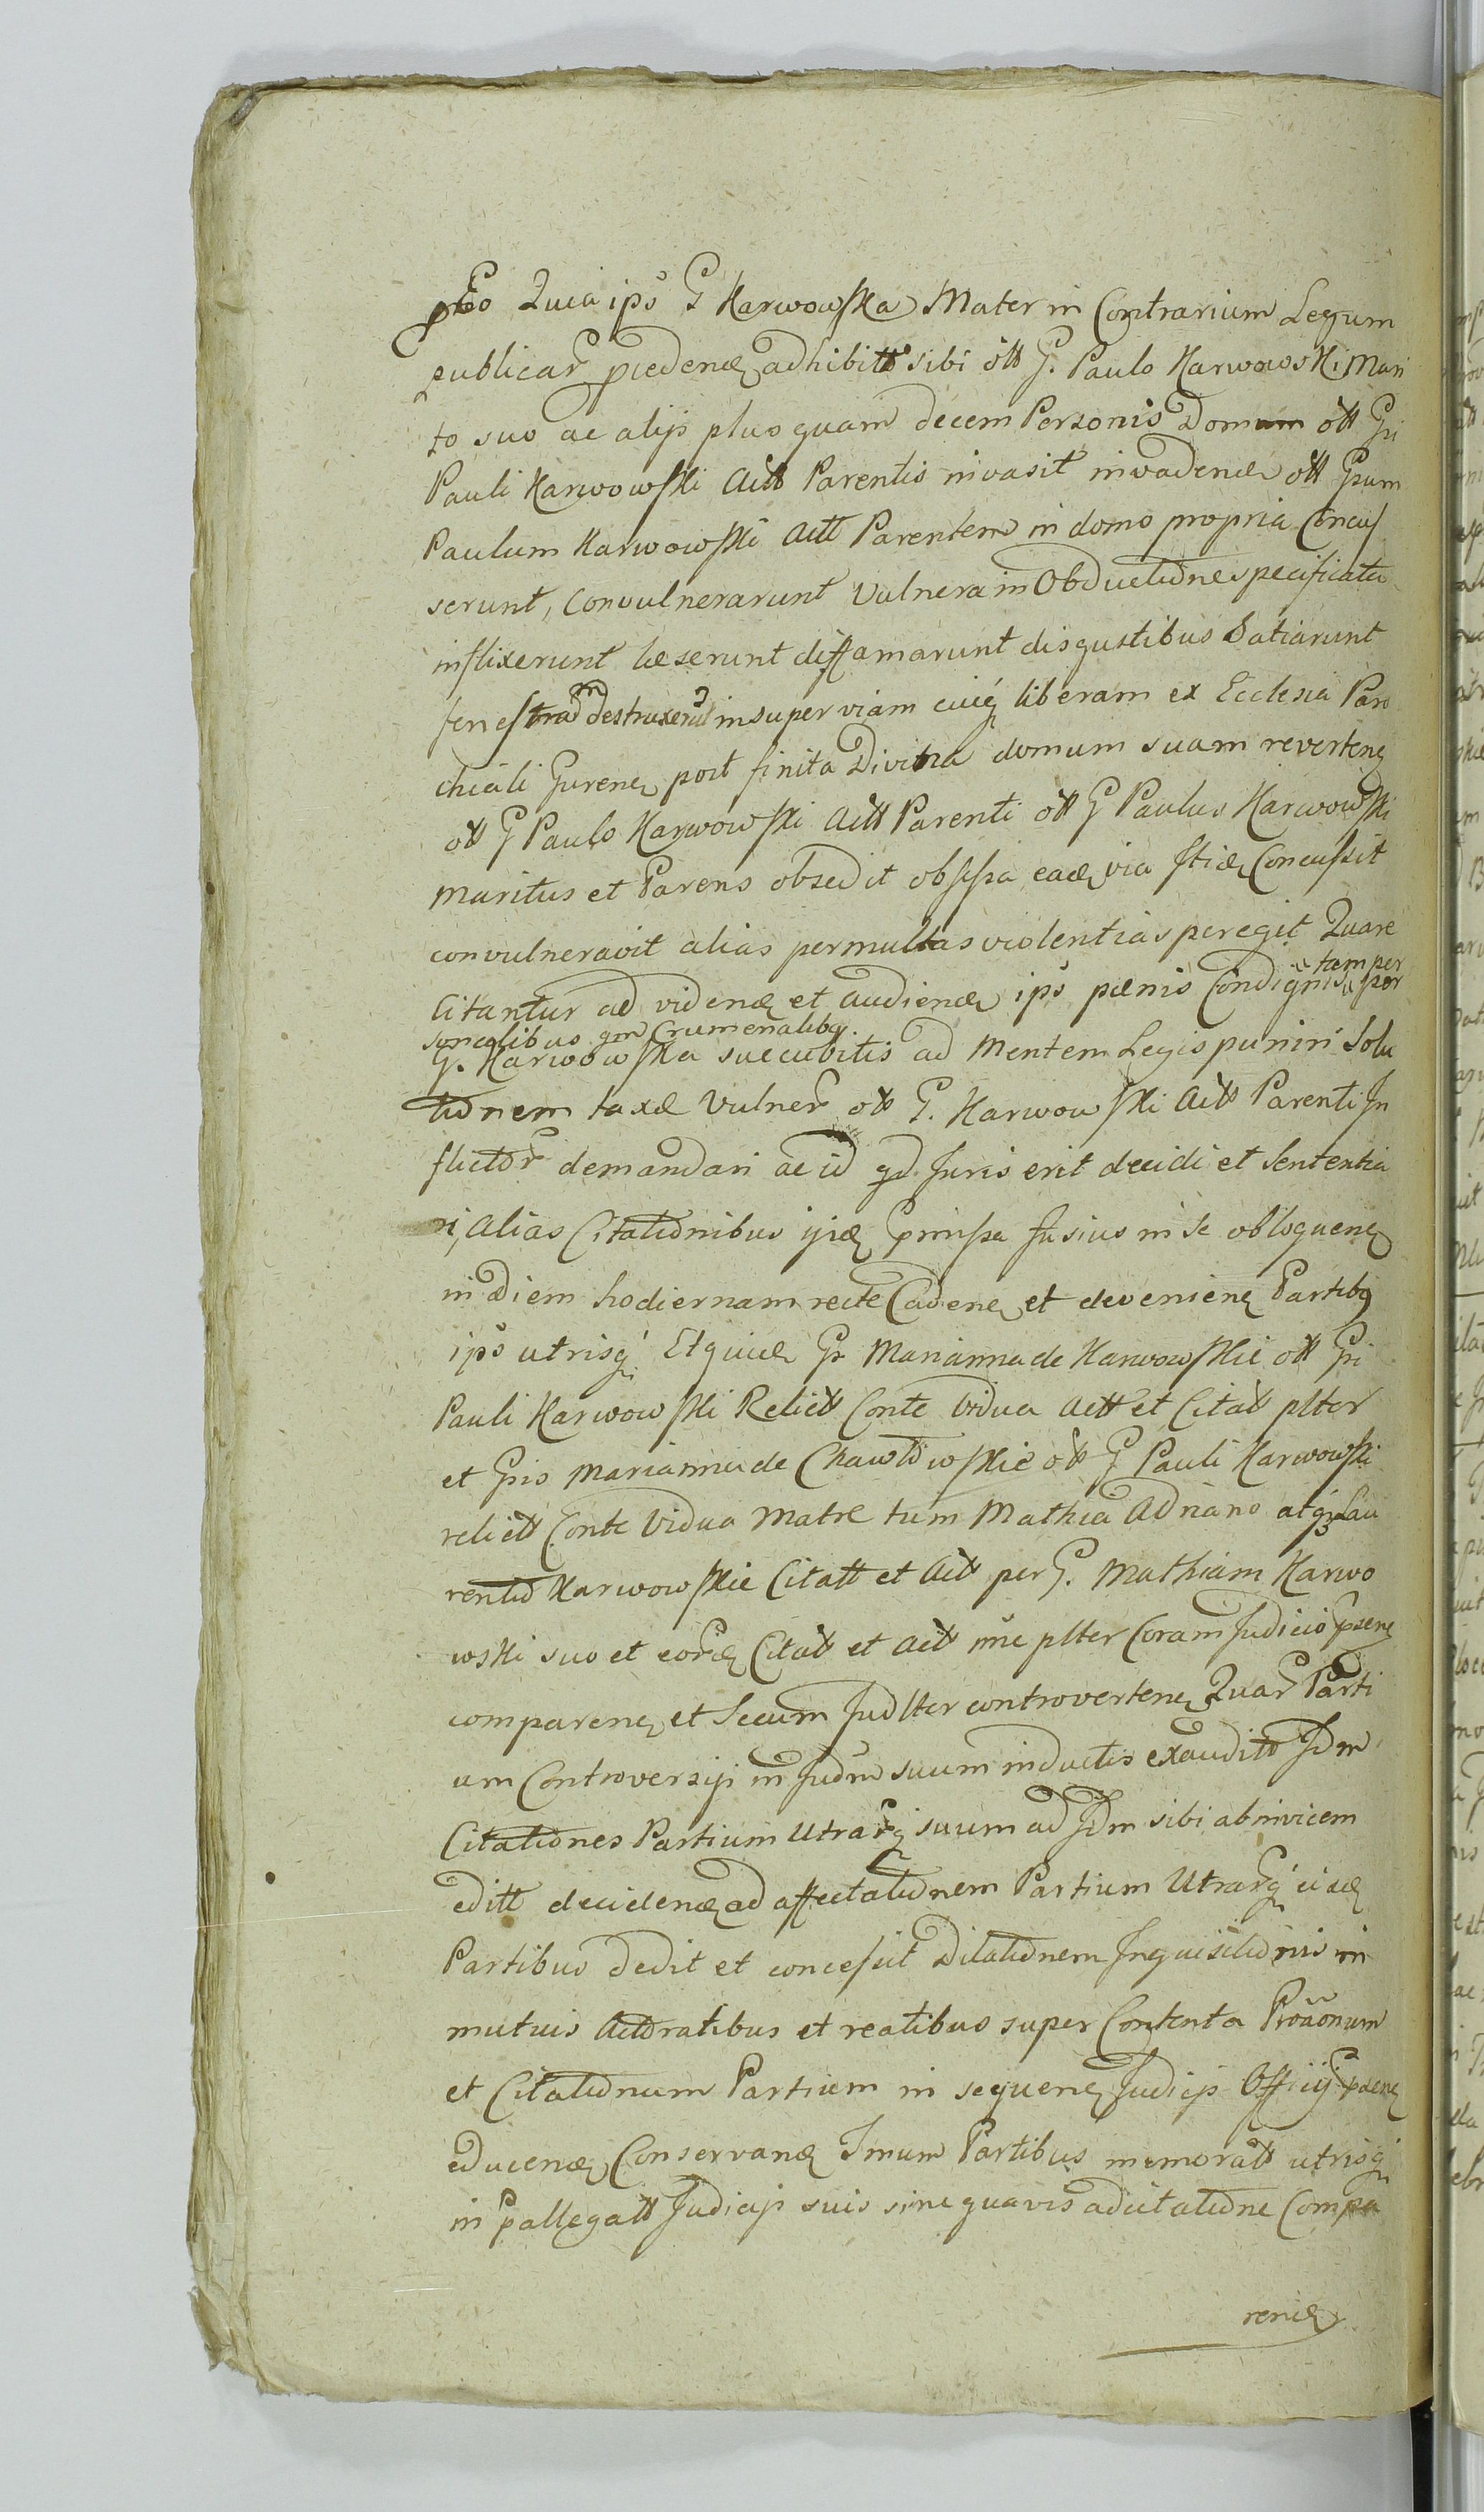 pro Quia ips G Karwowska Mater in Contrarium Legum
publicar praedend adhibitt sibi ött G. Paulo Karwowski Mari
to suo ac alijs plus quam decem Personis Domum ött Gsi
Pauli Karwowski Actt Parentis invasit invadend ött Gsum
Paulum Karwowski Actt Parentem in domo propria Concus
serunt, Convulnerarunt Vulnera in Obductione specificata
inflixerunt laeserunt diffamarunt disgustibus Satiarunt
fenestram destruxerunt insuper viam cuiq liberam ex Ecclesia Paro
chiali Gurens post finita Divina domum suam revertens
ött G Paulo Karwowski Actt Parenti ött G Paulus Karwowski
Maritus et Parens obsedit obsessa eade via Concussit
convulneravit alias permultas violentias peregit Quare
Citantur ad vidend et audiend ips paenis Condignis tam per
sonalibus qm Crumenalibq.
G. Karwowska succubitis ad Mentem Legis puniri Solu
tionem taxae Vulner ött G. Karwowski Actt Parenti In
flictor demandari ac id qd Juris erit decidi et Sententia
ri, alias Citationibus fusius in se obloquend
in diem hodiernam recte Cadend et devenien Partibq
ips utrisq Etquide Gr Marianna de Karwowskie ött Gsi
Pauli Karwowski Relictt Conte Vidua Actt et Citatt plter
et Gsis Marianna de Chawtowskie ött G Pauli Karwowski
relictt Conte Vidua Matre tum Mathia Adriano atq Lau
rentio Karwowskie Citatt et Actt per G. Mathiam Karwo
wski suo et eord Citatt et Actt nne plter Coram Judicio psend
comparend et Secum Judlter controvertend Quar Parti
um Controversijs in Judm suum inductis exauditt Jdm
Citationes Partium Utrarq suum ad Jdm sibi abinvicem
editt decidend ad affectationem Partium Utrarq eisd
Partibus dedit et concessit Dilationem Inquisitionis in
mutuis Actoratibus et reatibus super Contenta Proaonum
et Citationum Partium in sequend Judicijs Officij psend
educend Conservand Tmum Partibus memoratt utrisq
in pallegatt Judicijs suis sine quavis adcitatione Compa
rend